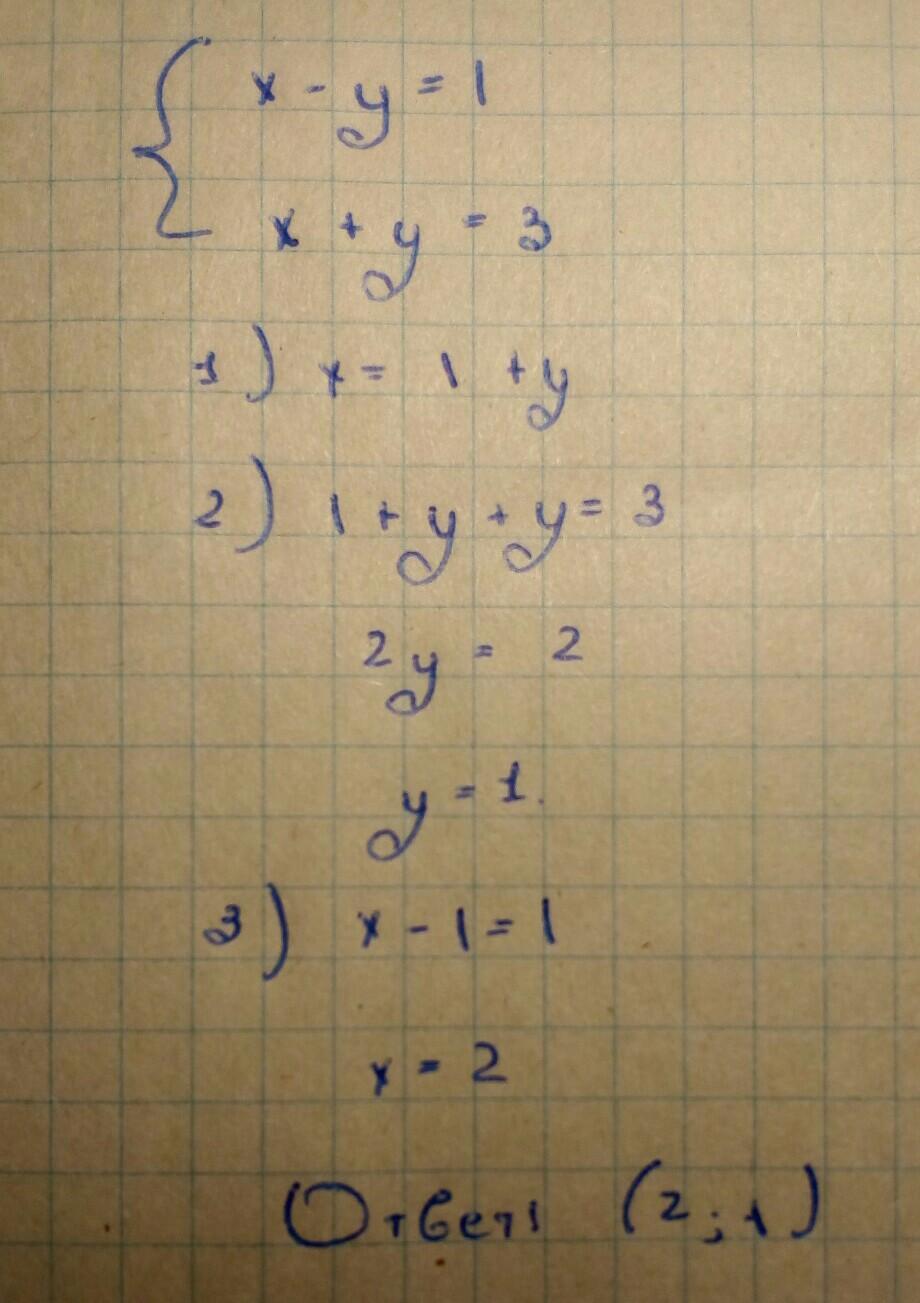 x - y = 1
x + y = 3
1) x = 1 + y
2) 1 + y + y = 3
2y = 2
y = 1.
3) x - 1 = 1
x = 2
Ответ: (2 ; 1)